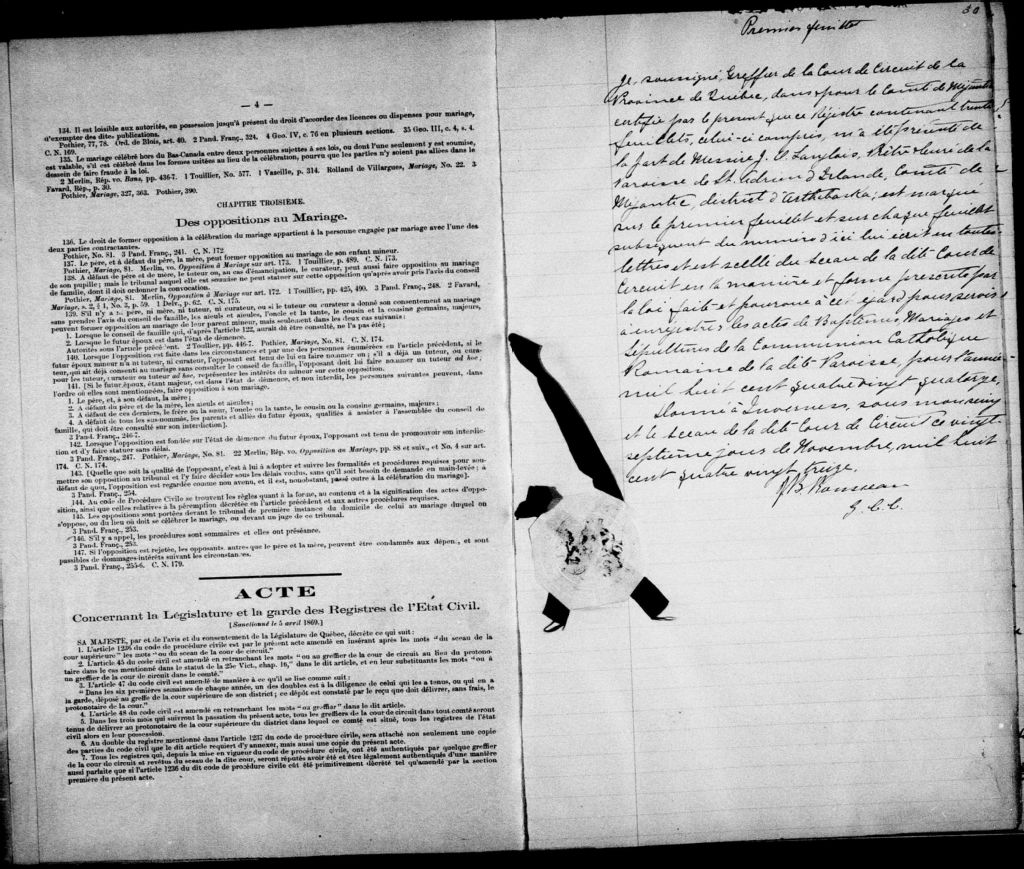 — 4 —
134. Il est loisible aux autorités, en possession jusqu'à présent du droit d'accorder des licences ou dispenses pour mariage,
d'exempter des dites publications.
Pothier, 77, 78. Ord. de Blois, art. 40. 2 Pand. Franç. 324. 4 Geo. IV, c. 76 en plusieurs sections. 35 Geo. III, c. 4, s. 4.
C. N. 169.
135. Le mariage célébré hors du Bas-Canada entre deux personnes sujettes à ses lois, ou dont l'une seulement y est soumise,
est valable, s'il est célébré dans les formes usitées au lieu de la célébration, pourvu que les parties n'y soient pas allées dans le
dessein de faire fraude à la loi.
2 Merlin, Rép. vo. Bans, pp. 436-7. 1 Touillier, No. 577. 1 Vazeille, p. 314. Rolland de Villargues, Mariage, No. 22. 3
Favard, Rép., p. 30.
Pothier, Mariage, 327, 363. Pothier, 390.
CHAPITRE TROISIÈME.
Des oppositions au Mariage.
136. Le droit de former opposition à la célébration du mariage appartient à la personne engagée par mariage avec l'une des
deux parties contractantes.
Pothier, No. 81. 3 Pand. Franç., 241. C. N. 172.
137. Le père, et à défaut du père, la mère, peut former opposition au mariage de son enfant mineur.
Pothier, Mariage, 81. Merlin, vo. Opposition à Mariage sur art. 173. 1 Toullier, p. 489. C. N. 173.
138. A défaut de père et de mère, le tuteur ou, au cas d'émancipation, le curateur, peut aussi faire opposition au mariage
de son pupille; mais le tribunal auquel elle est soumise ne peut statuer sur cette opposition qu'après avoir pris l'avis du conseil
de famille, dont il doit ordonner la convocation.
Pothier, Mariage, 81. Merlin, Opposition à Mariage sur art. 172. 1 Touillier, pp. 425, 490. 3 Pand. Franç., 248. 2 Favard,
Mariage, s. 2, § 1, No. 3, p. 59. 1 Delv., p. 62. C. N. 175.
139. S'il n'y a ni père, ni mère, ni tuteur, ni curateur, ou si le tuteur ou curateur a donné son consentement au mariage
sans prendre l'avis du conseil de famille, les aïeuls et aïeules, l'oncle et la tante, le cousin et la cousine germains, majeurs,
peuvent former opposition au mariage de leur parent mineur, mais seulement dans les deux cas suivants:
1. Lorsque le conseil de famille qui, d'après l'article 122, aurait dû être consulté, ne l'a pas été;
2. Lorsque le futur époux est dans l'état de démence.
Autorités sous l'article précédent. 2 Toullier, pp. 446-7. Pothier, Mariage, No. 81. C. N. 174.
140. Lorsque l'opposition est faite dans les circonstances et par une des personnes énumérées en l'article précédent, si le
futur époux mineur n'a ni tuteur, ni curateur, l'opposant est tenu de lui en faire nommer un; s'il a déjà un tuteur, ou cura-
teur, qui ait déjà consenti au mariage sans consulter le conseil de famille, l'opposant doit lui faire nommer un tuteur ad hoc;
pour les tuteur, curateur ou tuteur ad hoc, représenter les intérêts du mineur sur cette opposition.
141. [Si le futur époux, étant majeur, est dans l'état de démence, et non interdit, les personnes suivantes peuvent, dans
l'ordre où elles sont mentionnées, faire opposition à son mariage:
1. Le père, et, à son défaut, la mère;
2. A défaut du père et de la mère, les aïeuls et aïeules;
3. A défaut de ces derniers, le frère ou la sœur, l'oncle ou la tante, le cousin ou la cousine germains, majeurs;
4. A défaut de tous les sus-nommés, les parents et alliés du futur époux, qualifiés à assister à l'assemblée du conseil de
famille, qui doit être consulté sur son interdiction].
3 Pand. Franç., 246-7.
142. Lorsque l'opposition est fondée sur l'état de démence du futur époux, l'opposant est tenu de promouvoir son interdic-
tion et d'y faire statuer sans délai.
3 Pand. Franç., 247. Pothier, Mariage, No. 81. 22 Merlin, Rép. vo. Opposition au Mariage, pp. 88 et suiv., et No. 4 sur art.
174. C. N. 174.
143. [Quelle que soit la qualité de l'opposant, c'est à lui à adopter et suivre les formalités et procédures requises pour sou-
mettre son opposition au tribunal et l'y faire décider sous les délais voulus, sans qu'il soit besoin de demande en main-levée; à
défaut de quoi, l'opposition est regardée comme non avenue, et il est, nonobstant, passé outre à la célébration du mariage].
3 Pand. Franç., 254.
144. Au code de Procédure Civile se trouvent les règles quant à la forme, au contenu et à la signification des actes d'oppo-
sition, ainsi que celles relatives à la péremption décrétée en l'article précédent et aux autres procédures requises.
145. Les oppositions sont portées devant le tribunal de première instance du domicile de celui au mariage duquel on
s'oppose, ou du lieu où doit se célébrer le mariage, ou devant un juge de ce tribunal.
3 Pand. Franç., 253.
146. S'il y a appel, les procédures sont sommaires et elles ont préséance.
3 Pand. Franç., 253.
147. Si l'opposition est rejetée, les opposants, autres que le père et la mère, peuvent être condamnés aux dépens, et sont
passibles de dommages-intérêts suivant les circonstances.
3 Pand. Franç., 255-6. C. N. 179.
ACTE
Concernant la Législature et la garde des Registres de l'Etat Civil.
[Sanctionné le 5 avril 1869.]
SA MAJESTÉ, par et de l'avis et du consentement de la Législature de Québec, décrète ce qui suit:
1. L'article 1236 du code de procédure civile est par le présent acte amendé en insérant après les mots "du sceau de la
cour supérieure" les mots "ou du sceau de la cour de circuit."
2. L'article 45 du code civil est amendé en retranchant les mots "ou au greffier de la cour de circuit au lieu du protono-
taire dans le cas mentionné dans le statut de la 25e Vict., chap. 16," dans le dit article, et en leur substituants les mots "ou à
un greffier de la cour de circuit dans le comté."
3. L'article 47 du code civil est amendé de manière à ce qu'il se lise comme suit:
"Dans les six premières semaines de chaque année, un des doubles est à la diligence de celui qui les a tenus, ou qui en a
la garde, déposé au greffe de la cour supérieure de son district; ce dépôt est constaté par le reçu que doit délivrer, sans frais, le
protonotaire de la cour."
4. L'article 48 du code civil est amendé en retranchant les mots "ou greffiar" dans le dit article.
5. Dans les trois mois qui suivront la passation du présent acte, tous les greffiers de la cour de circuit dans tout comté seront
tenus de délivrer au protonotaire de la cour supérieure du district dans lequel ce comté est situé, tous les registres de l'état
civil alors en leur possession.
6. Au double du registre mentionné dans l'article 1237 du code de procédure civile, sera attaché non seulement une copie
des parties du code civil que le dit article requiert d'y annexer, mais aussi une copie du présent acte.
7. Tous les registres qui, depuis la mise en vigueur du code de procédure civile, ont été authentiqués par quelque greffier
de la cour de circuit et revêtus du sceau de la dite cour, seront réputés avoir été et être légalement authentiqués d'une manière
aussi parfaite que si l'article 1236 du dit code de procédure civile eût été primitivement décrété tel qu'amendé par la section
première du présent acte.
30
Premier feuillet
Je, soussigné, Greffier de la Cour de Circuit de la
Province de Québec, dans & pour le Comté de Mégantic
certifie par le présent que ce Régistre contenant trente
feuillets, celui-ci compris, m'a été présenté de
la part de Messire J. O. Langlois, Prêtre & Curé de la
Paroisse de St. Adrien d'Irlande, Comté de
Mégantic, district d'Arthabaska; est marqué
sur le premier feuillet et sur chaque feuillet
subséquent du numéro d'ici lui écrit en toutes
lettres et est scellé du sceau de la dite Cour de
Circuit en la manière et forme prescrite par
la loi faite et pourvue à cet égard pour servir
à enregistrer les actes de Baptêmes, Mariages et
Sépultures de la Communion Catholique
Romaine de la dite Paroisse pour l'année
mil huit cent quatre vingt quatorze.
Donné à Inverness, sous mon seing
et le sceau de la dite Cour de Circuit ce vingt-
septième jour de Novembre, mil huit
cent quatre vingt treize.
J. B. Rousseau
G. C. C.